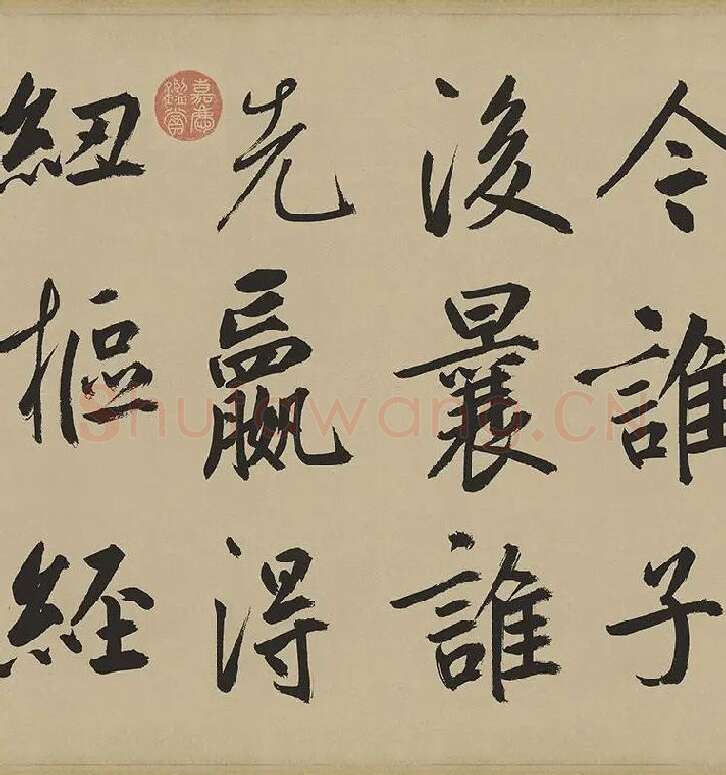 今誰子
後曩誰
先嬴得
紐樞經
嘉慶鑑賞
Shufawang.CN